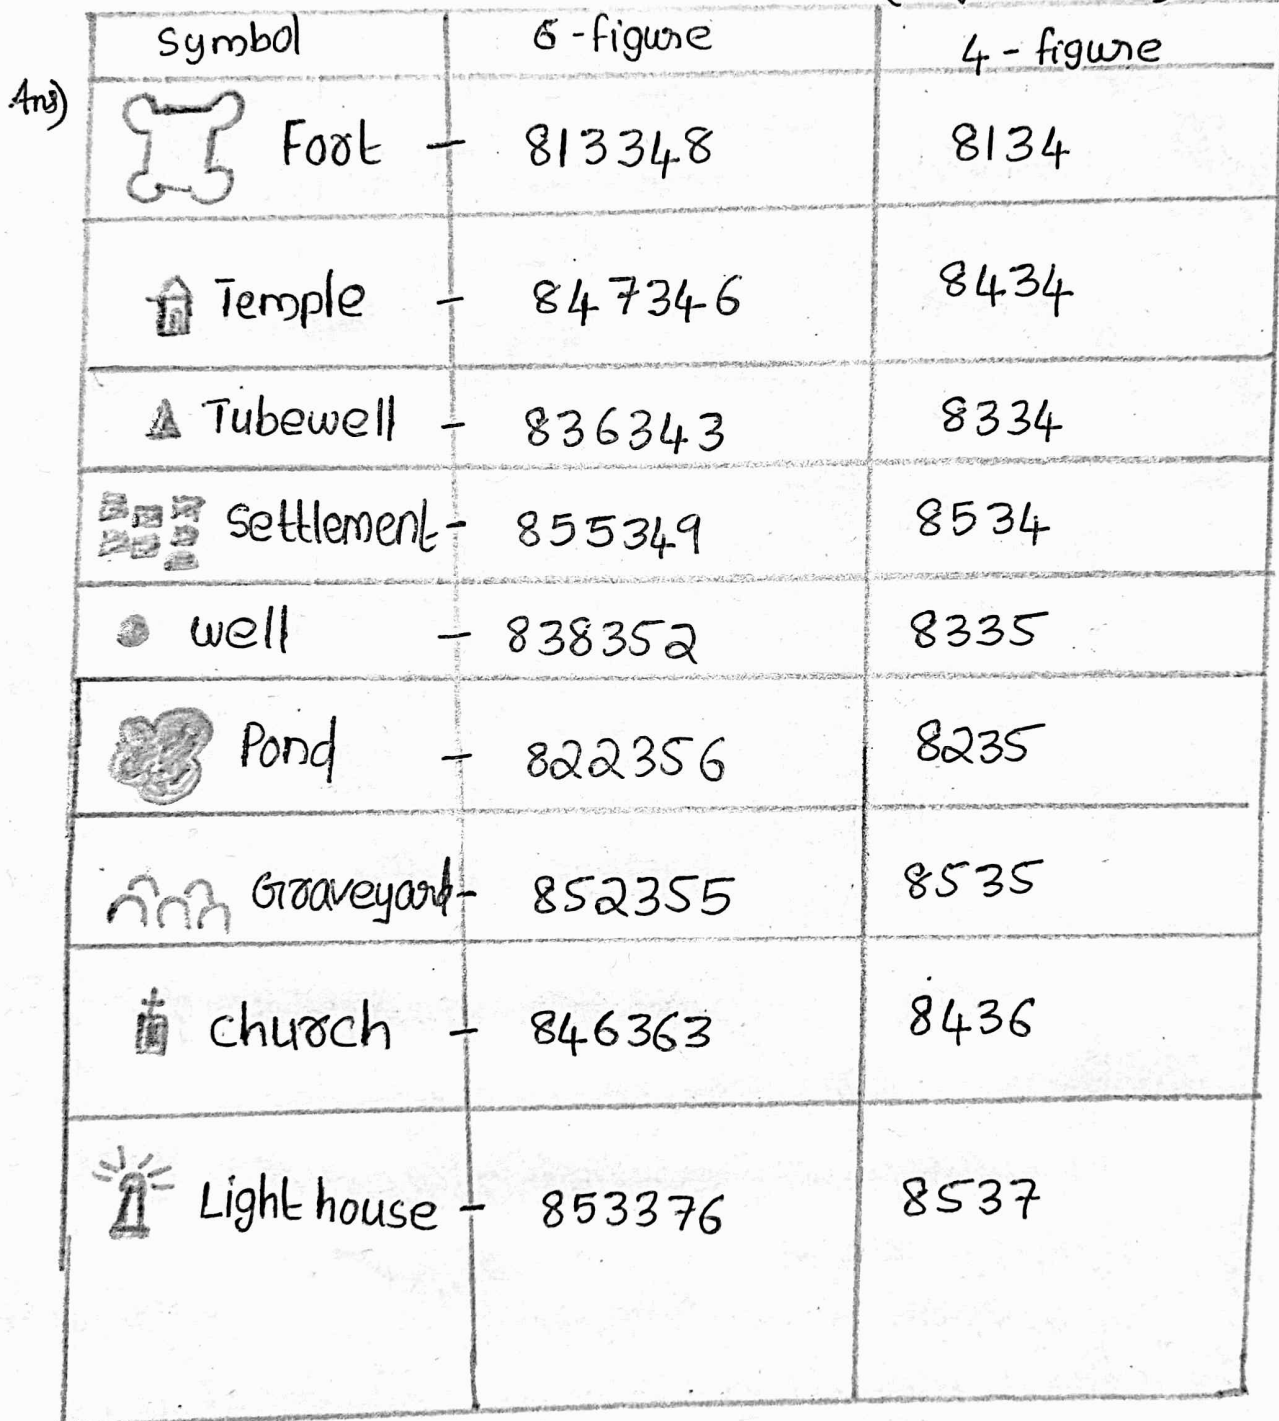 Symbol 6-figure 4-figure
Ans)
Fort - 813348 8134
Temple - 847346 8434
Tubewell - 836343 8334
Settlement - 855349 8534
well - 838352 8335
Pond - 822356 8235
Graveyard - 852355 8535
church - 846363 8436
Light house - 853376 8537